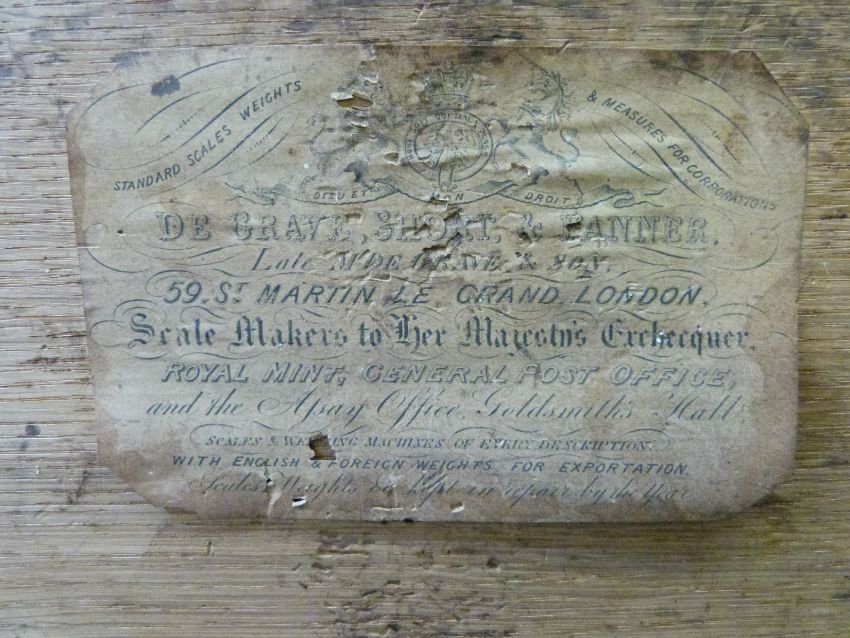 STANDARD SCALES WEIGHTS & MEASURES FOR CORPORATIONS
HONI SOIT QUI MAL Y PENSE
DIEU ET MON DROIT
DE GRAVE, SHORT, & FANNER,
Late Mrs DE GRAVE & SON,
59, ST MARTIN LE GRAND, LONDON,
Scale Makers to Her Majesty's Exchecquer,
ROYAL MINT, GENERAL POST OFFICE,
and the Assay Office, Goldsmith's Hall.
SCALES & WEIGHING MACHINES OF EVERY DESCRIPTION.
WITH ENGLISH & FOREIGN WEIGHTS FOR EXPORTATION.
Scales Weights &c kept in repair by the Year